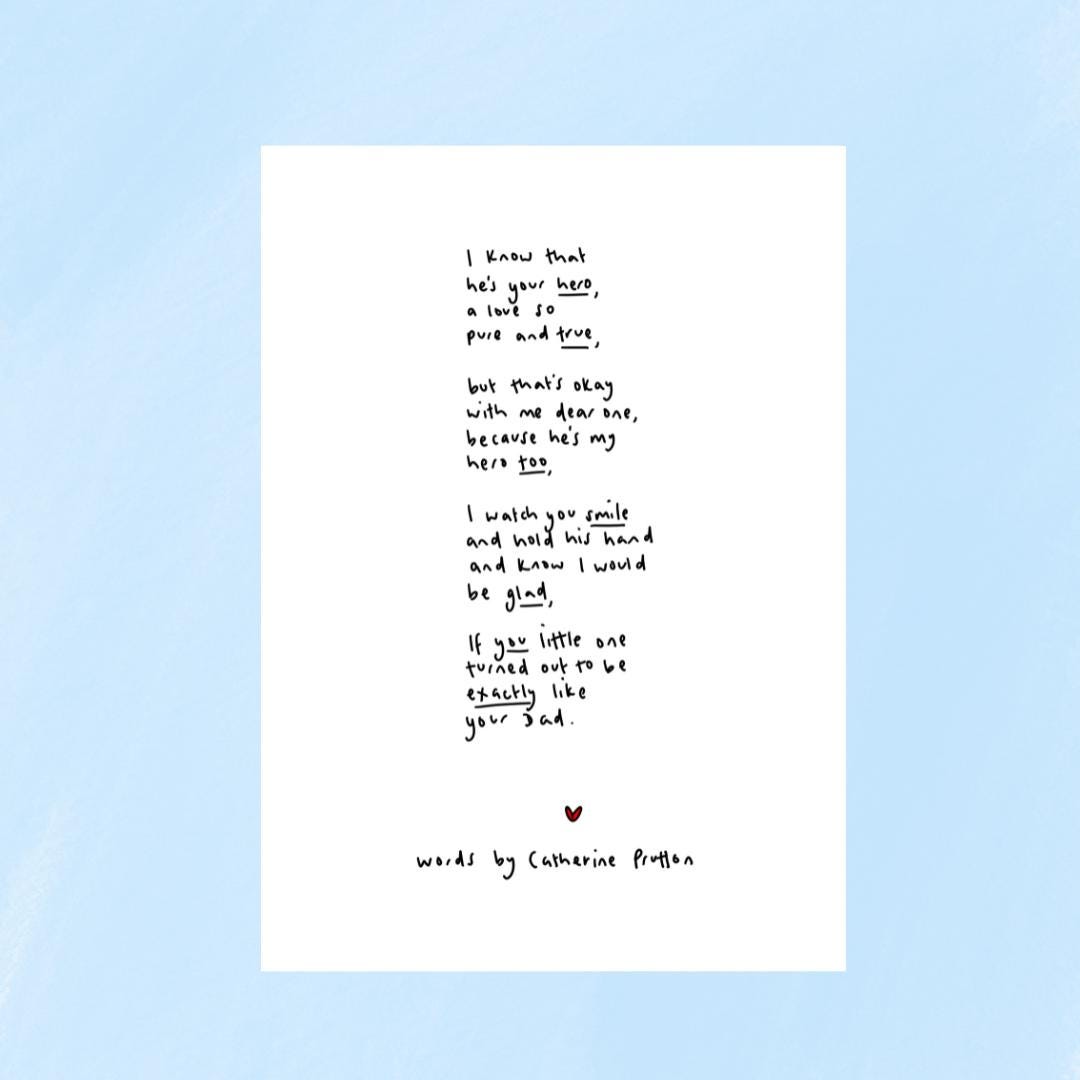 I know that
he's your hero,
a love so
pure and true,
but that's okay
with me dear one,
because he's my
hero too,
I watch you smile
and hold his hand
and know I would
be glad,
If you little one
turned out to be
exactly like
your Dad.
words by Catherine Prutton